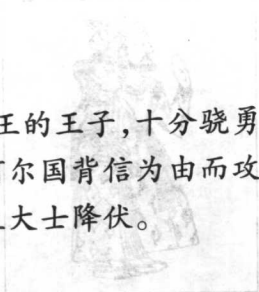 王的王子，十分骁勇
尔国背信为由而攻
大士降伏。